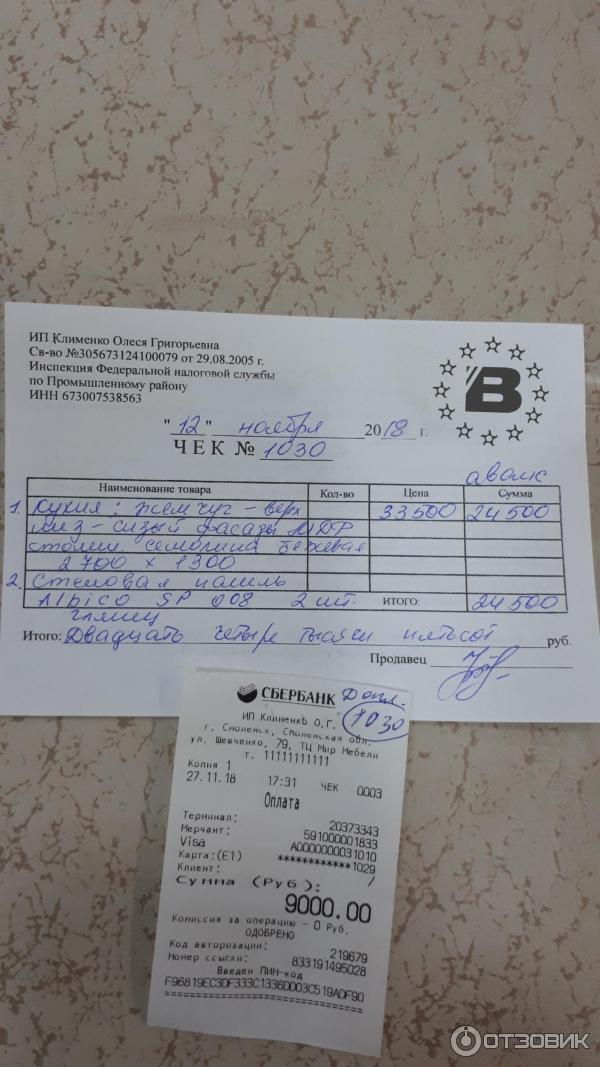 ИП Клименко Олеся Григорьевна
Св-во №305673124100079 от 29.08.2005 г.
Инспекция Федеральной налоговой службы
по Промышленному району
ИНН 673007538563
В
"12" ноября 2018 г.
ЧЕК № 1030
аванс
Наименование товара Кол-во Цена Сумма
1. Кухня: жемчуг - верх 33500 24500
низ - сизый фасады МДФ
столеш. семолина бежевая
2700 х 1300
2. Стеновая панель
Albico SP 008 2 шт. ИТОГО: 24500
глянец
Итого: Двадцать четыре тысячи пятьсот руб.
Продавец
СБЕРБАНК
Допл.
1030
ИП Клименко О.Г.
г. Смоленск, Смоленская обл.
ул. Шевченко, 79, ТЦ Мир Мебели
т. 11111111111
Копия 1
27.11.18 17:31 ЧЕК 0003
Оплата
Терминал: 20373343
Мерчант: 591000001833
Visa A0000000031010
Карта:(E1) ************1029
Клиент: /
Сумма (Руб):
9000.00
Комиссия за операцию - 0 Руб.
ОДОБРЕНО
Код авторизации: 219679
Номер ссылки: 833191495028
Введен ПИН-код
F96819EC3DF333C1336DD03C519ADF90
ОТЗОВИК